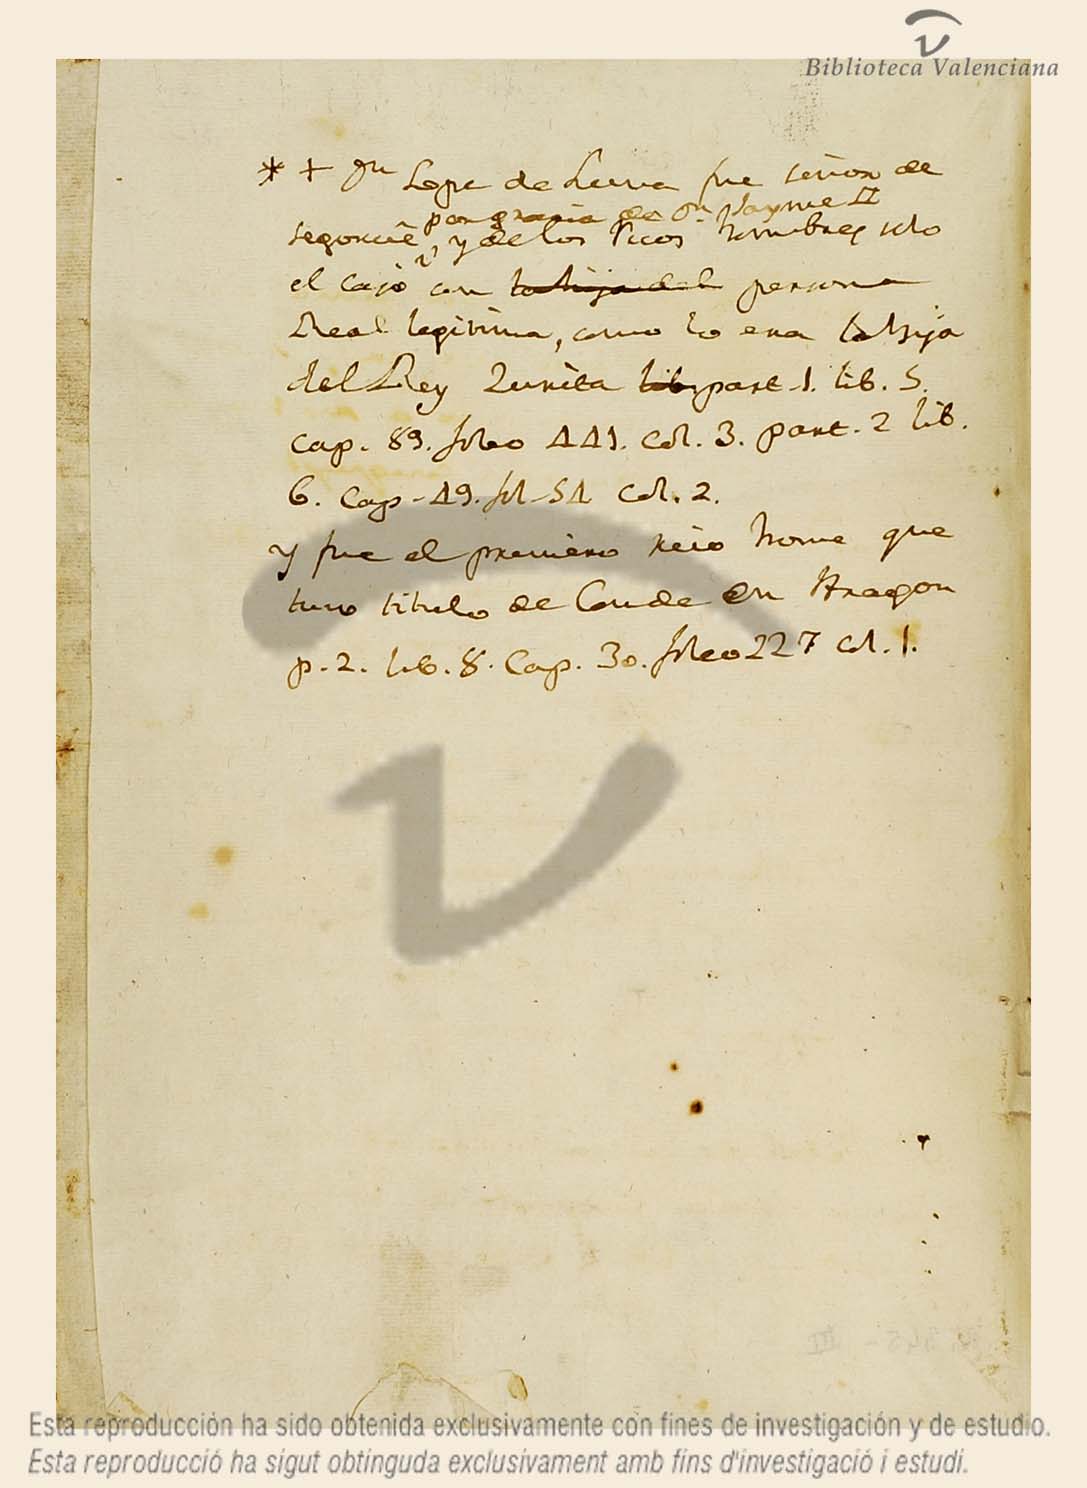 Biblioteca Valenciana
* + Dn Lope de Luna fue señor de
por gracia de Dn Jayme II
segorve, y de los Ricos hombres solo
el casó con la hija del persona
Real legitima, como lo era la hija
del Rey Zurita lib part 1. lib. 5.
cap. 89. foleo 441. Col. 3. part. 2 lib.
6. Cap 49. fol 54 Col. 2.
y fue el primero rico home que
tuvo titulo de Conde en Aragon
p. 2. lib. 8. Cap. 30. foleo 227 Col. 1.
Esta reproducción ha sido obtenida exclusivamente con fines de investigación y de estudio.
Esta reproducció ha sigut obtinguda exclusivament amb fins d'investigació i estudi.